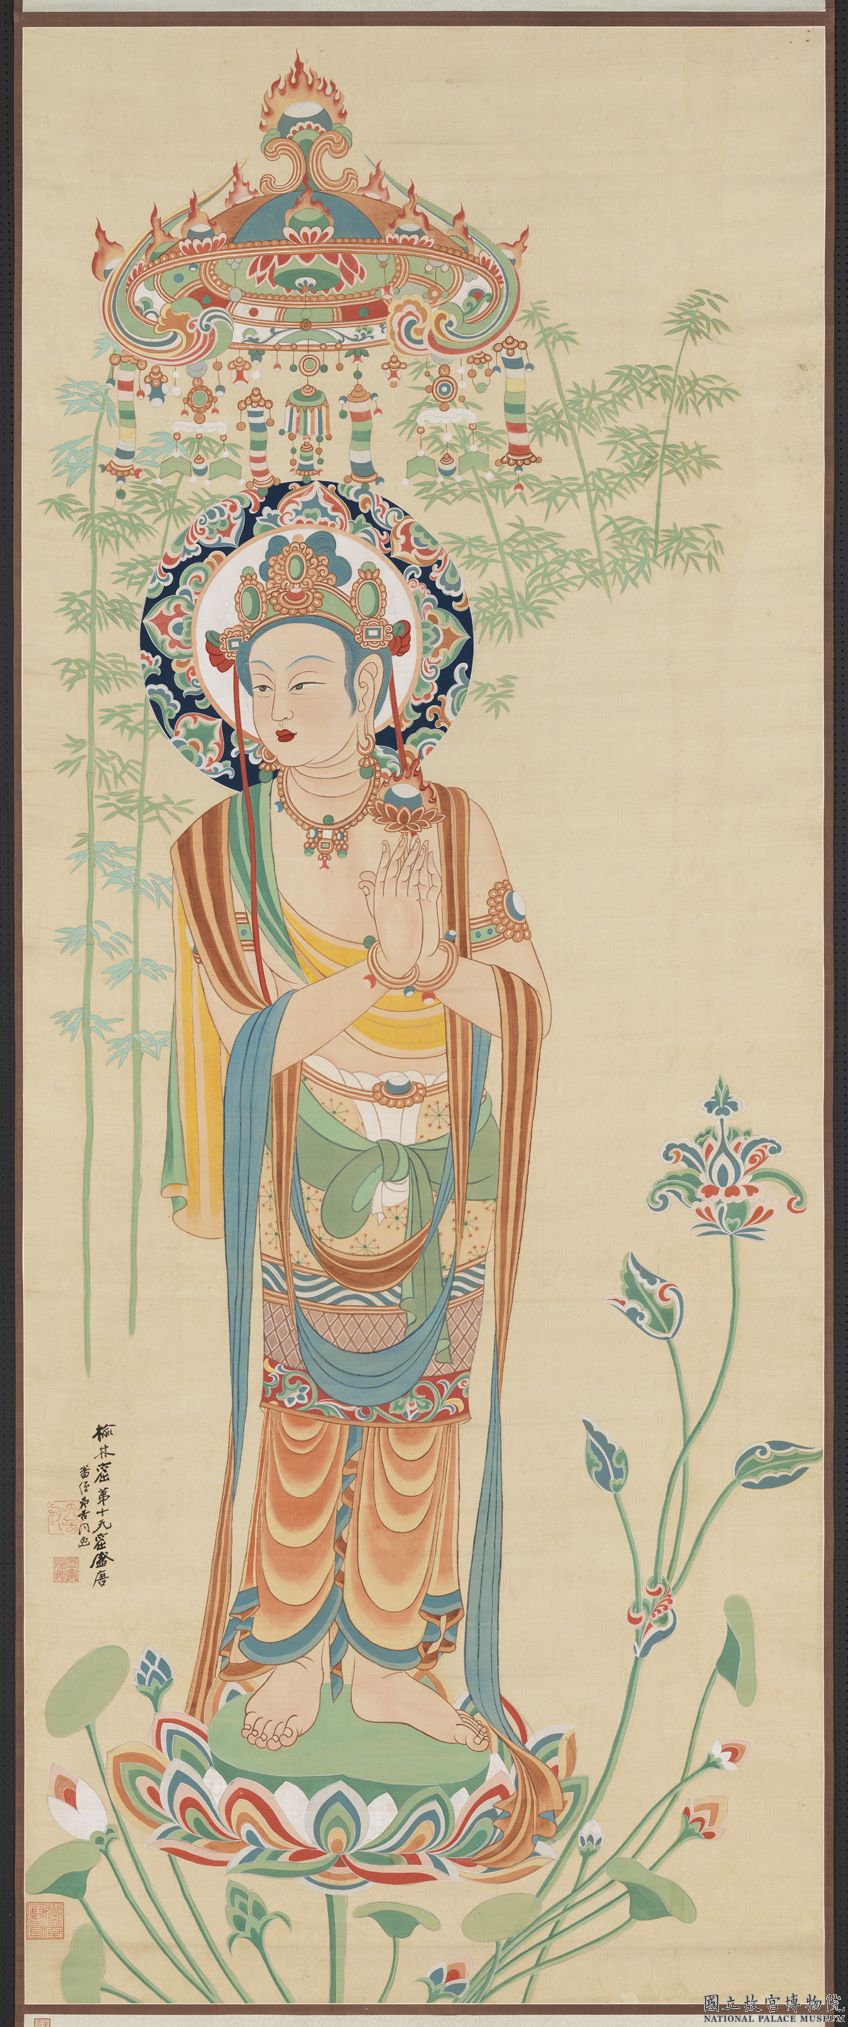 榆林窟第十九窟盛唐
番僧昂吉同画
國立故宮博物院
NATIONAL PALACE MUSEUM